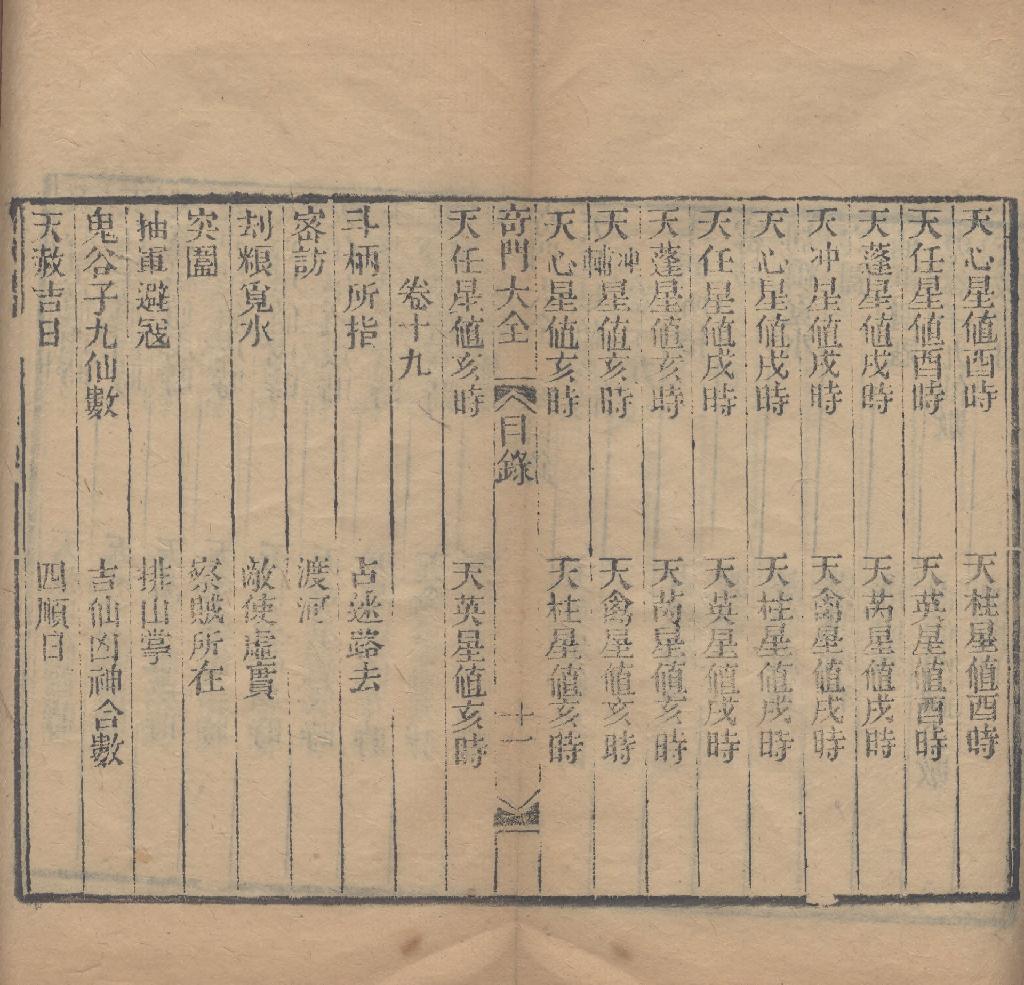 天心星値酉時　天柱星値酉時
天任星値酉時　天英星値酉時
天蓬星値戌時　天芮星値戌時
天冲星値戌時　天禽星値戌時
天心星値戌時　天柱星値戌時
天任星値戌時　天英星値戌時
天蓬星値亥時　天芮星値亥時
天冲輔星値亥時　天禽星値亥時
天心星値亥時　天柱星値亥時
奇門大全　目錄　十一
天任星値亥時　天英星値亥時
卷十九
斗柄所指　占迷路去
密訪　渡河
刦粮覓水　敵使虛實
突圍　察賊所在
抽軍避寇　排山掌
鬼谷子九仙數　吉仙凶神合數
天赦吉日　四順日